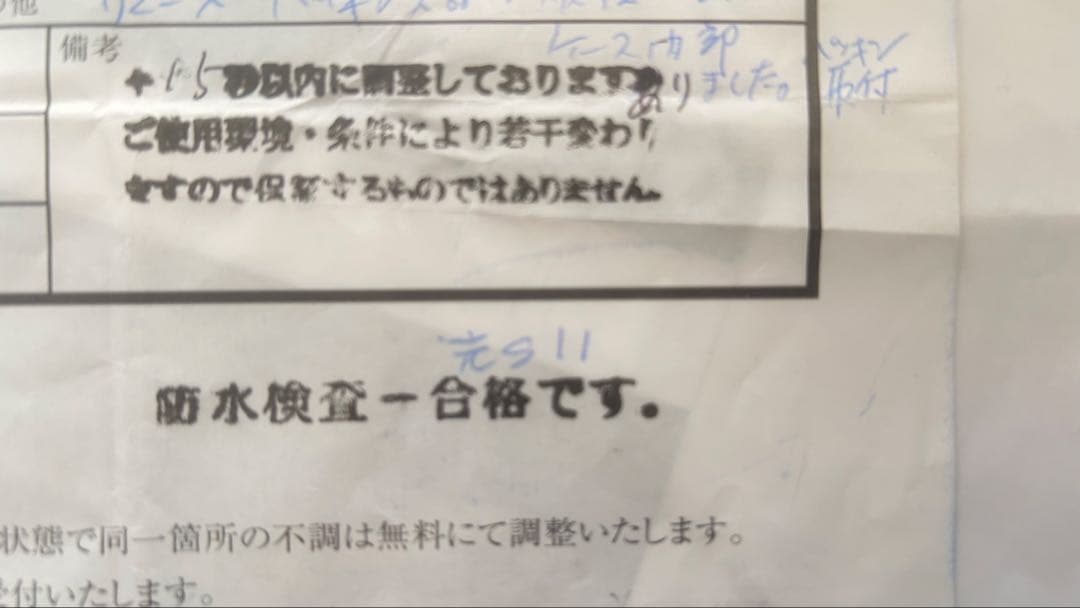 の他
備考
ケース内部
パッキン
+ 15秒以内に調整しております。
ありました。
取付
ご使用環境・条件により若干変わり
ますので保証するものではありません。
完S11
防水検査ー合格です。
状態で同一箇所の不調は無料にて調整いたします。
受付いたします。